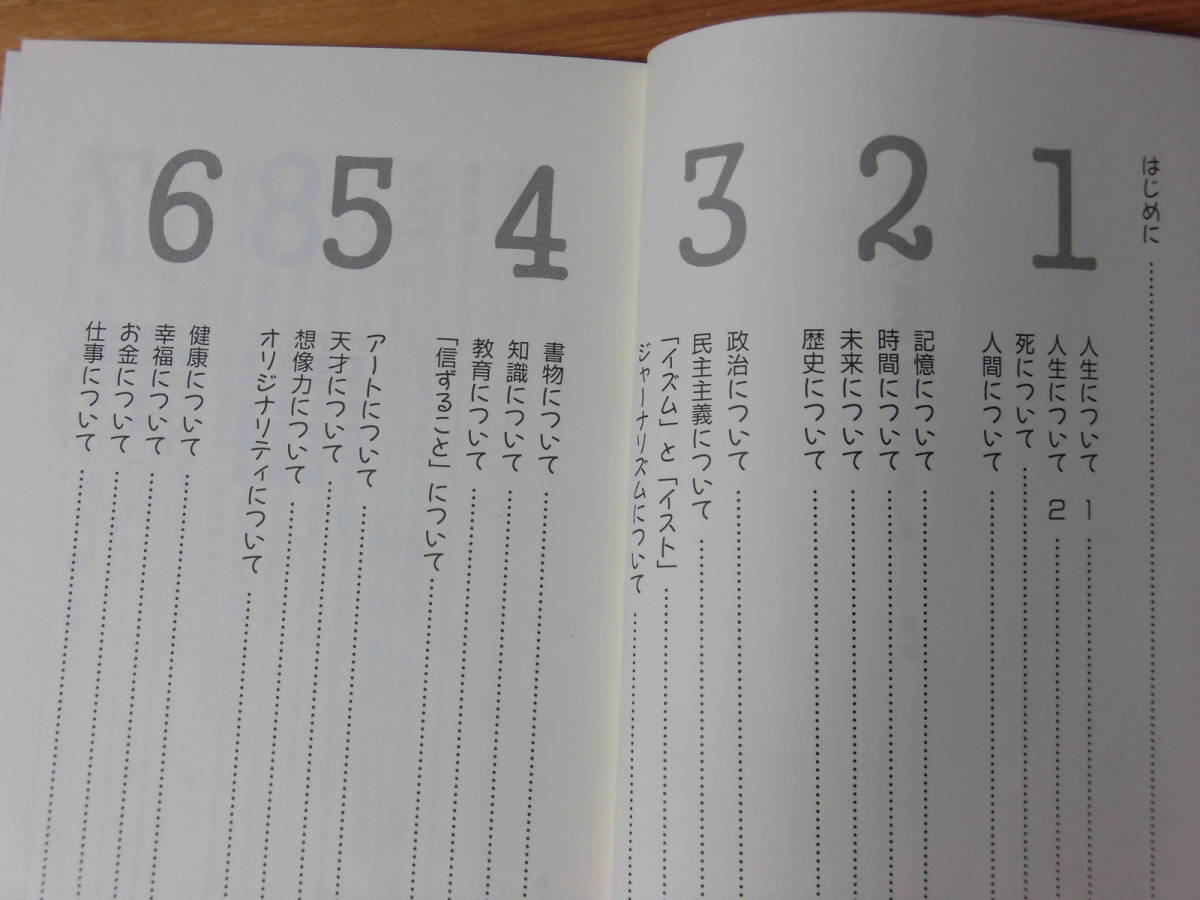 はじめに
1
人生について 1
人生について 2
死について
人間について
2
記憶について
時間について
未来について
歴史について
3
政治について
民主主義について
「イズム」と「イスト」
ジャーナリズムについて
4
書物について
知識について
教育について
「信ずること」について
5
アートについて
天才について
想像力について
オリジナリティについて
6
健康について
幸福について
お金について
仕事について